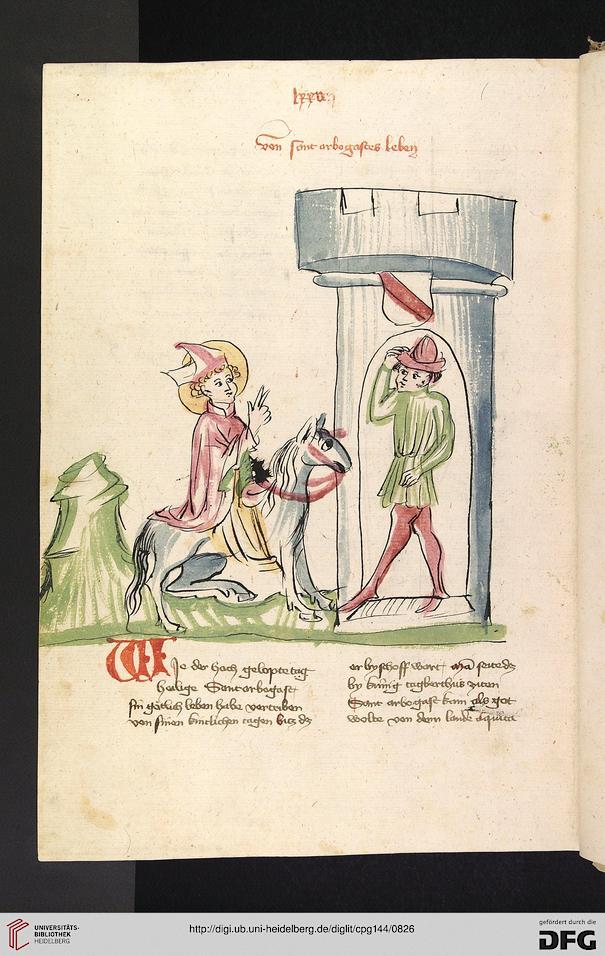 lxxvij
Von sant arbogastes leben
WIe der hoch gelopte tag
heilige Sant arbogast
sin götlich leben habe vertriben
von sinen kintlichen tagen bitz dz
er byschoff wart man seite dz
by künig tagberthus ziten
Sant arbogast kam als got
wolte von dem lande aquita
UNIVERSITÄTS-
BIBLIOTHEK
HEIDELBERG
http://digi.ub.uni-heidelberg.de/diglit/cpg144/0826
gefördert durch die
DFG